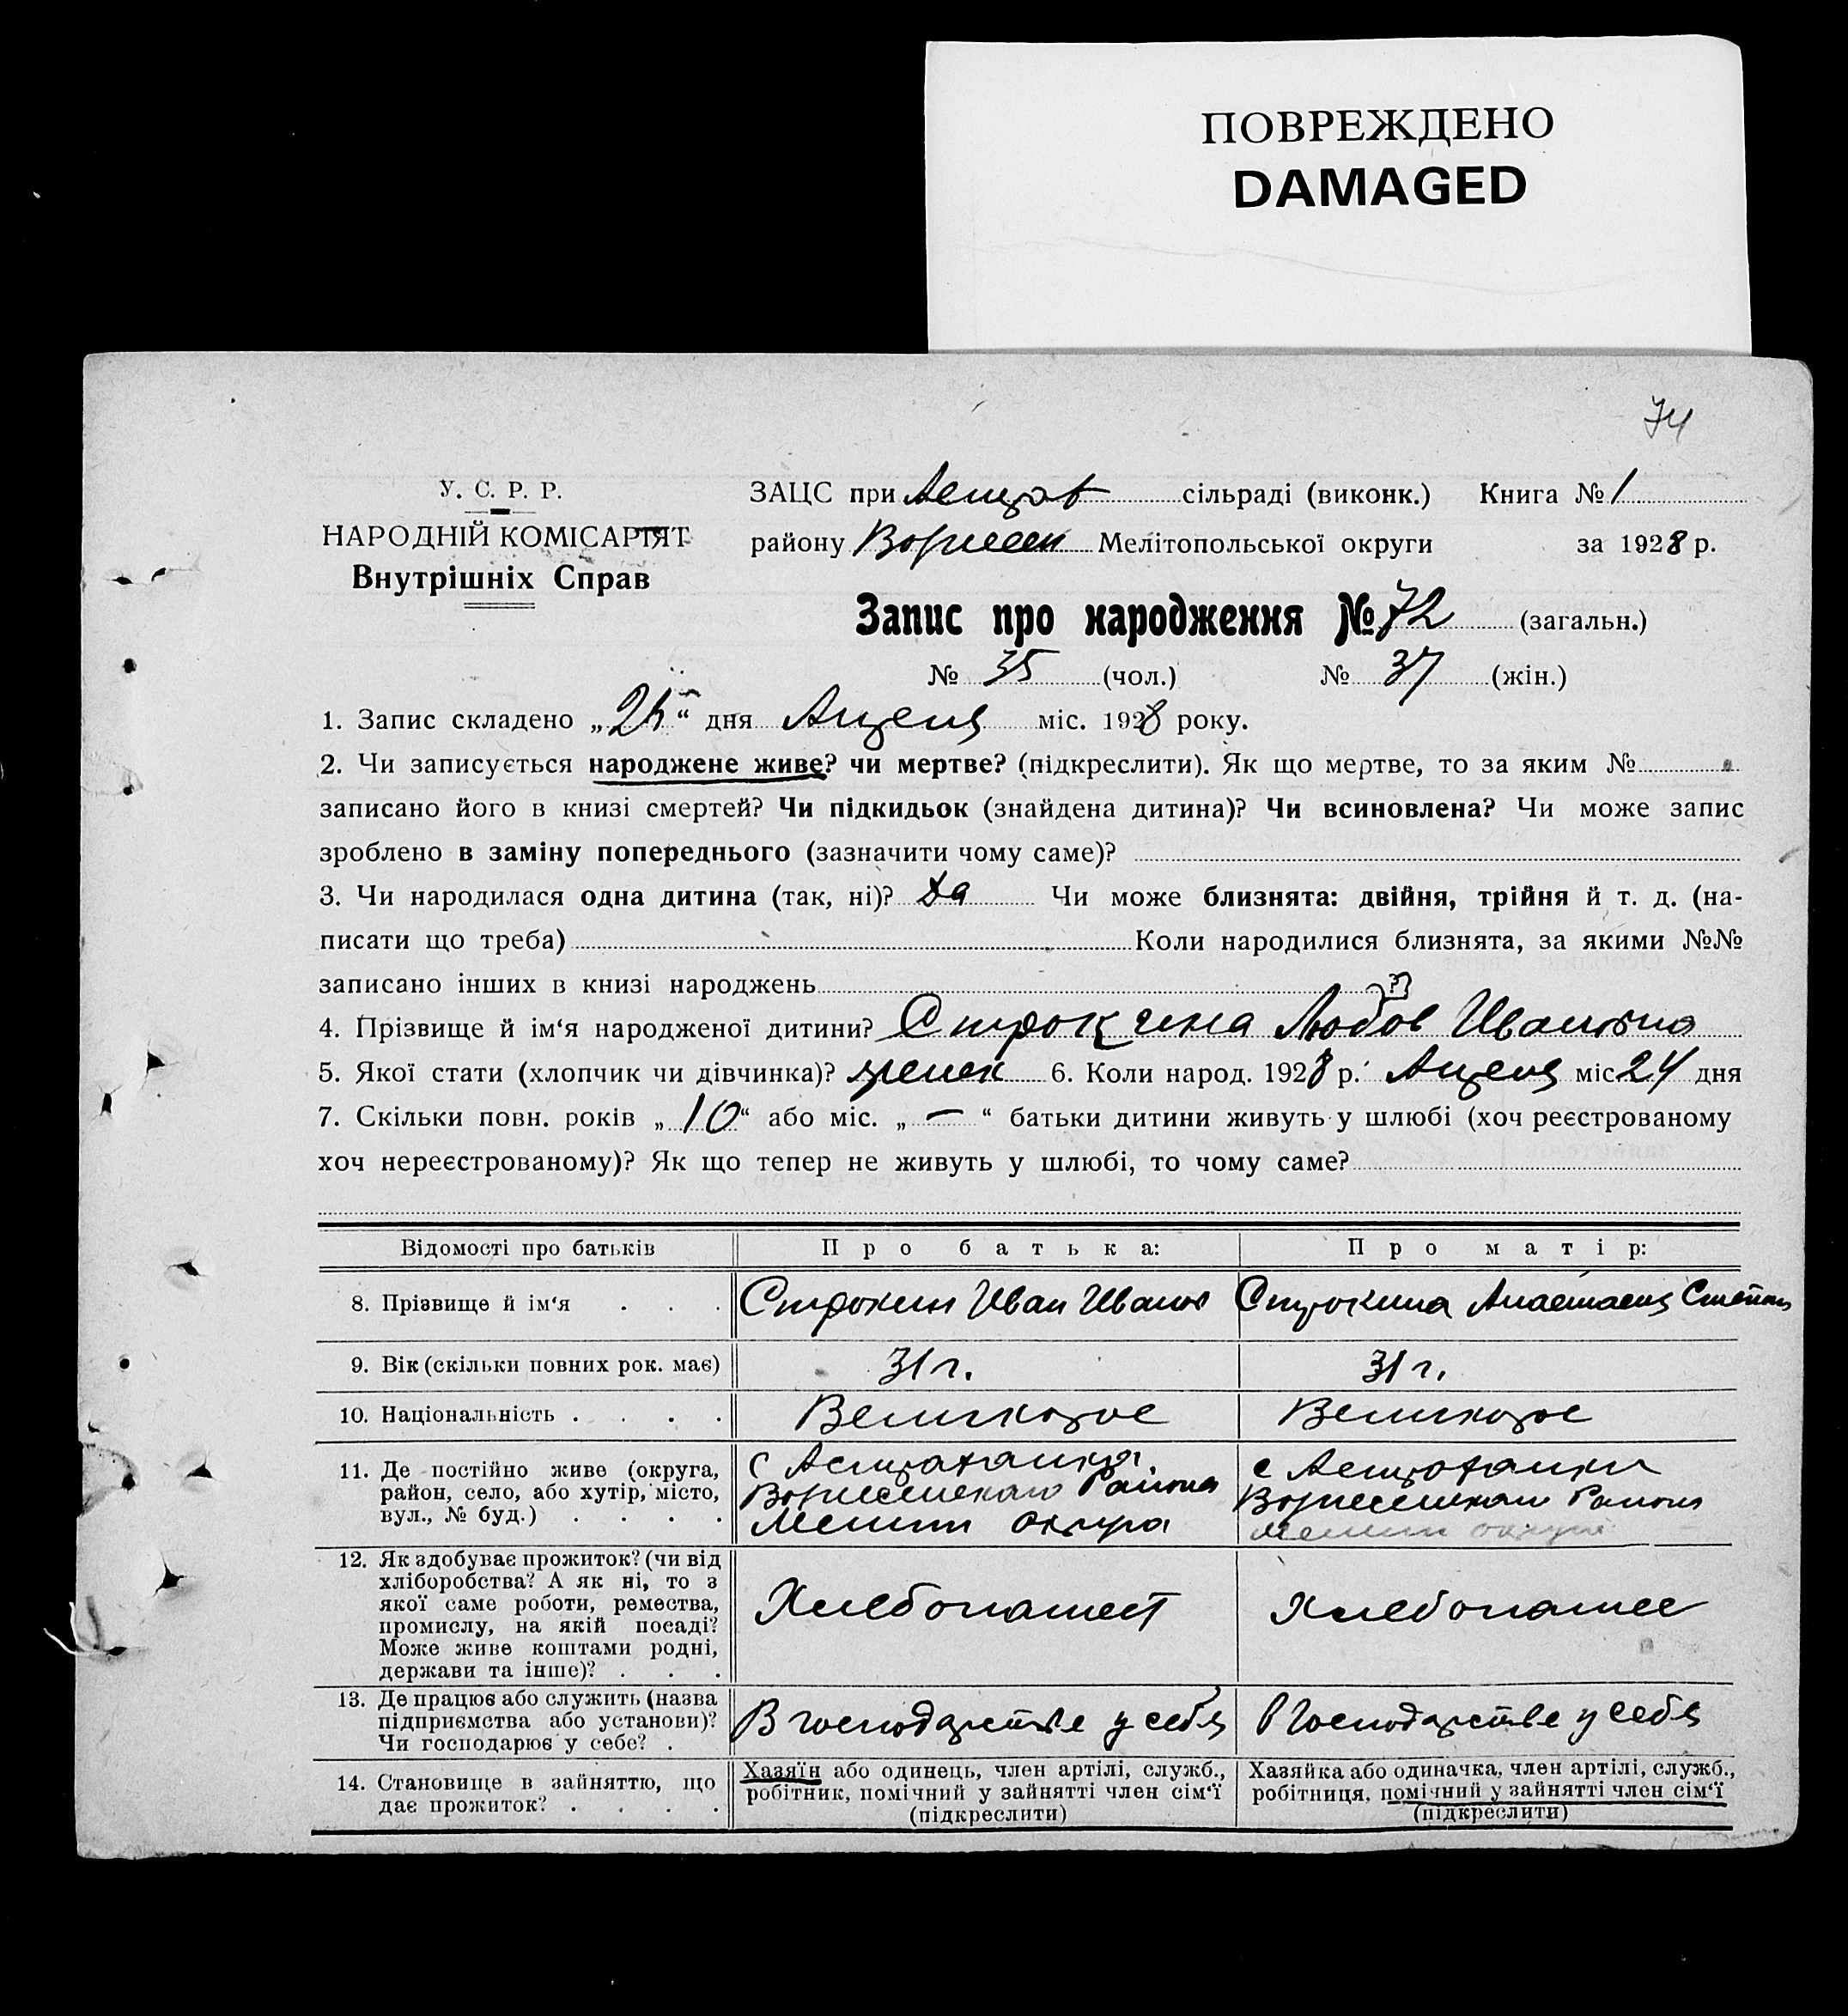 ПОВРЕЖДЕНО
DAMAGED
74
У. С. Р. Р.
НАРОДНІЙ КОМІСАРІЯТ
Внутрішніх Справ
ЗАЦС при Астрах сільраді (виконк.) Книга № 1
району Мелітопольської округи за 1928 р.
Запис про народження № 72 (загальн.)
№ 35 (чол.) № 37 (жін.)
1. Запис складено „25“ дня Апреля міс. 1928 року.
2. Чи записується народжене живе? чи мертве? (підкреслити). Як що мертве, то за яким №
записано його в книзі смертей? Чи підкидьок (знайдена дитина)? Чи всиновлена? Чи може запис
зроблено в заміну попереднього (зазначити чому саме)?
3. Чи народилася одна дитина (так, ні)? да Чи може близнята: двійня, трійня й т. д. (на-
писати що треба) Коли народилися близнята, за якими №№
записано інших в книзі народжень
4. Прізвище й ім‘я народженої дитини? Строкина Любов Ивановна
5. Якої стати (хлопчик чи дівчинка)? женск 6. Коли народ. 1928 р. Апреля міс. 24 дня
7. Скільки повн. років „10“ або міс. „—“ батьки дитини живуть у шлюбі (хоч реєстрованому
хоч нереєстрованому)? Як що тепер не живуть у шлюбі, то чому саме?
Відомості про батьків Про батька: Про матір:
8. Прізвище й ім‘я . . . Строкин Иван Иванов Строкина Анастасия Степан
9. Вік (скільки повних рок. має) 31 г. 31 г.
10. Національність . . . . Великорос Великорос
11. Де постійно живе (округа,
район, село, або хутір, місто,
вул., № буд.) . . . .
с Астраханка
Района
Мелит округа
с Астраханки
Района
Мелит округи
12. Як здобуває прожиток? (чи від
хліборобства? А як ні, то з
якої саме роботи, ремества,
промислу, на якій посаді?
Може живе коштами родні,
держави та інше)? . . .
Хлебопашест
Хлебопашес
13. Де працює або служить (назва
підприємства або установи)?
Чи господарює у себе? .
В господарстве у себя
В господарстве у себя
14. Становище в зайняттю, що
дає прожиток? . . . .
Хазяїн або одинець, член артілі, служб.,
робітник, помічний у зайнятті член сім‘ї
(підкреслити)
Хазяйка або одиначка, член артілі, служб.,
робітниця, помічний у зайнятті член сім‘ї
(підкреслити)